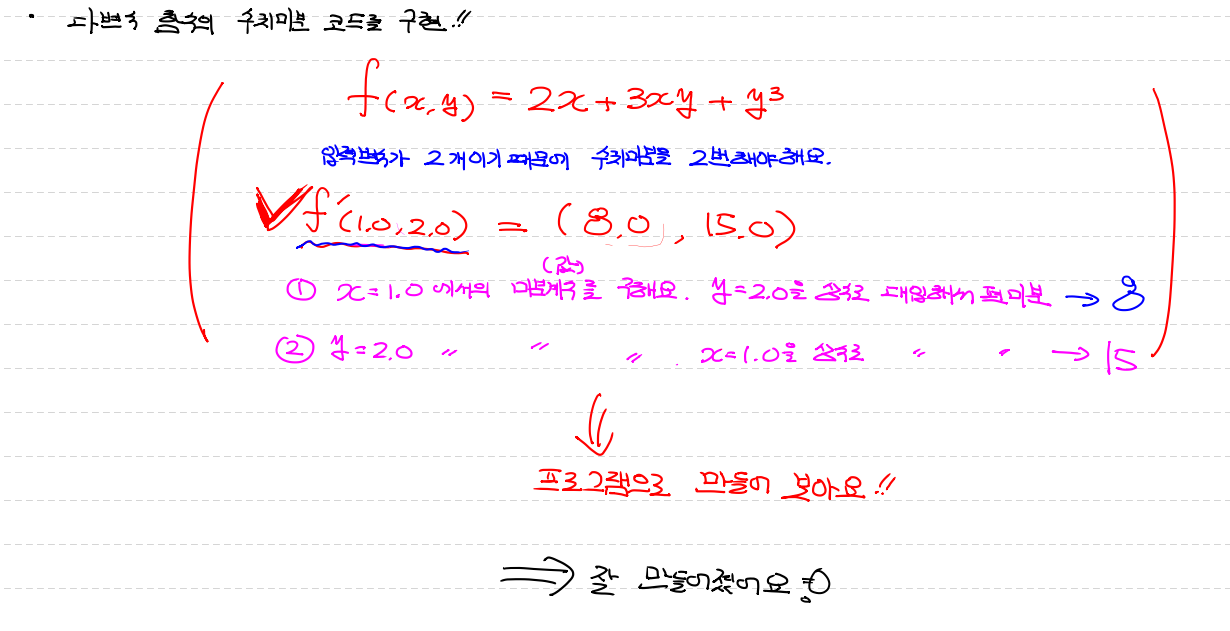 · 다변수 함수의 수치미분 코드를 구현!!
f(x,y) = 2x + 3xy + y³
입력변수가 2개이기 때문에 수치미분을 2번해야해요.
f'(1.0, 2.0) = (8.0, 15.0)
(값)
① x=1.0에서의 미분계수를 구해요. y=2.0을 상수로 대입해서 편미분 → 8
② y=2.0 〃 〃 〃 . x=1.0을 상수로 〃 〃 → 15
프로그램으로 만들어 보아요!!
⇒ 잘 만들어졌어요